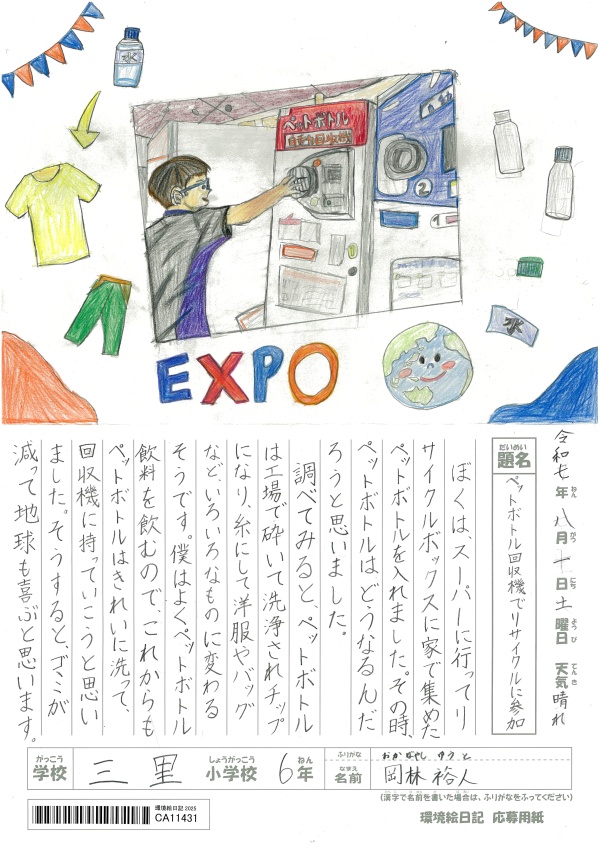 水
ペットボトル
自動回収機
2
1
水
EXPO
令和七年八月十日土曜日 天気晴れ
ねん がつ にち ようび てんき
だいめい
題名
ペットボトル回収機でリサイクルに参加
ぼくは、スーパーに行ってリ
サイクルボックスに家で集めた
ペットボトルを入れました。その時、
ペットボトルは、どうなるんだ
ろうと思いました。
調べてみると、ペットボトル
は工場で砕いて洗浄されチップ
になり、糸にして洋服やバッグ
などいろいろなものに変わる
そうです。僕はよくペットボトル
飲料を飲むので、これからも
ペットボトルはきれいに洗って、
回収機に持っていこうと思い
ました。そうすると、ゴミが
減って地球も喜ぶと思います。
がっこう しょうがっこう ねん ふりがな おかばやし ゆうと
学校 三里 小学校 6年 なまえ 名前 岡林裕人
(漢字で名前を書いた場合は、ふりがなをふってください)
環境絵日記 2025
CA11431
環境絵日記 応募用紙